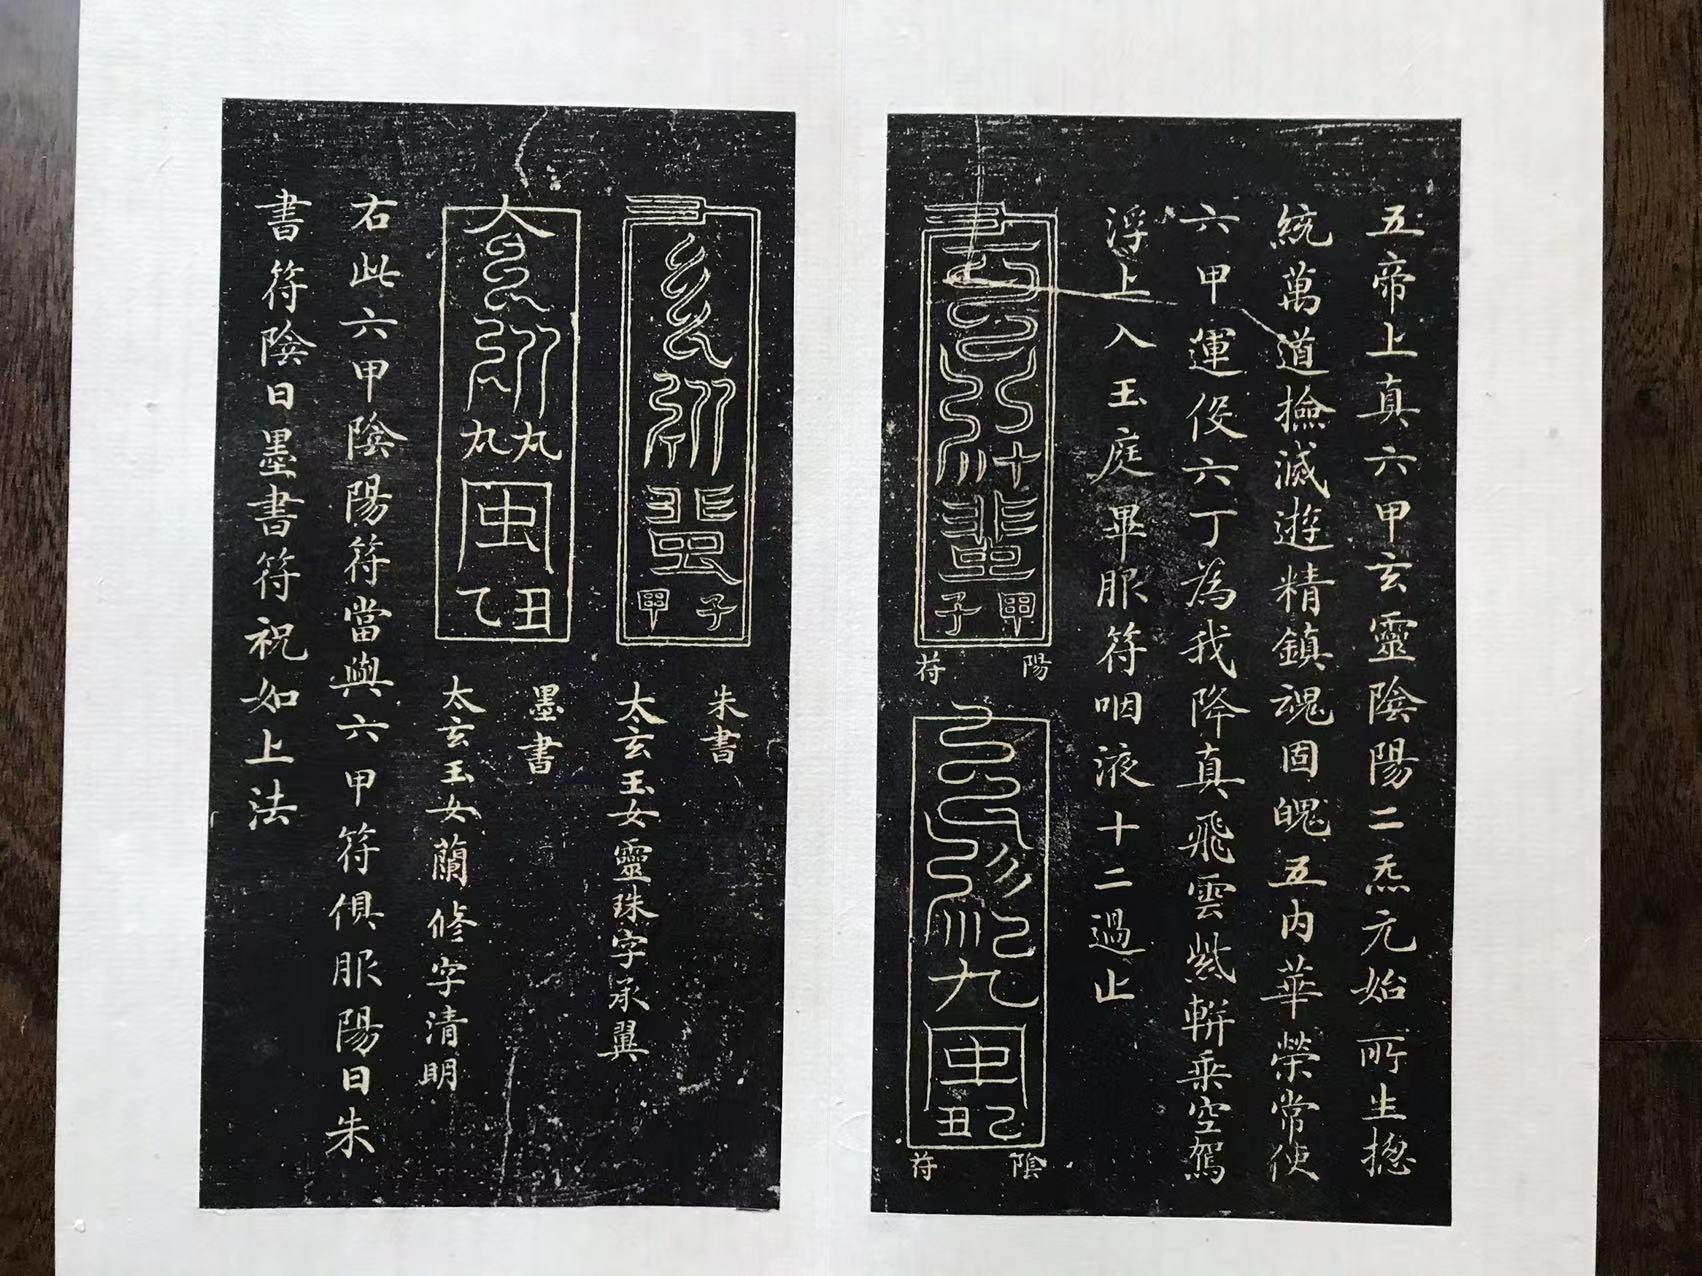 五帝上真六甲玄靈陰陽二炁元始所生揔
統萬道撿滅遊精鎮魂固魄五內華榮常使
六甲運役六丁為我降真飛雲紫軿乘空駕
浮上入玉庭畢服符咽液十二過止
甲子
陽符
己丑
陰符
子甲
朱書
太玄玉女靈珠字承翼
丑乙
墨書
太玄玉女蘭修字清明
右此六甲陰陽符當與六甲符俱服陽日朱
書符陰日墨書符祝如上法